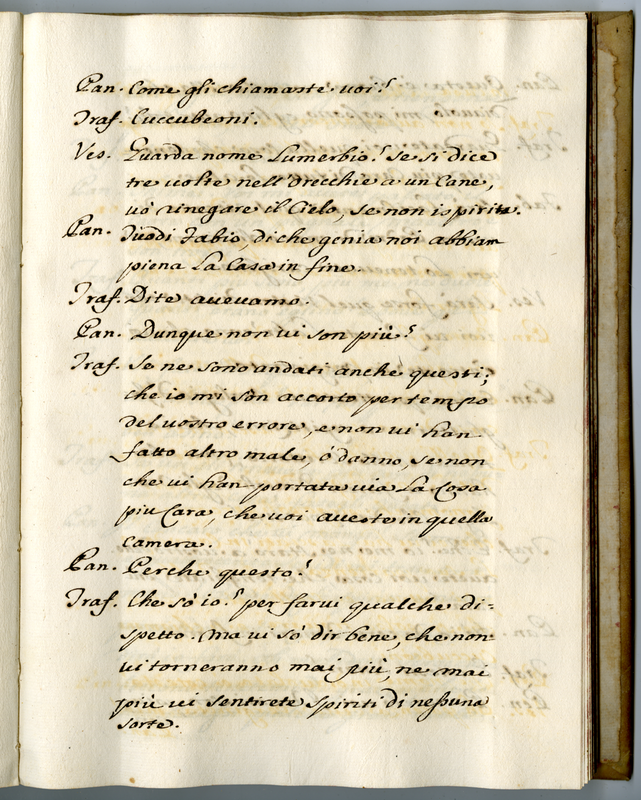 Pan. Come gli chiamaste voi?
Traf. Cuccubeoni.
Ves. Guarda nome Lumerbio! se si dice
tre volte nell'orecchie a un Cane,
vò rinegare il Cielo, se non ispirita.
Pan. Tuodi Fabio, di che genia noi abbiam
piena La Casa in fine.
Traf. Dite avevamo.
Pan. Dunque non vi son più?
Traf. Se ne sono andati anche questi;
che io mi son accorto per tempo
del vostro errore, e non vi han
fatto altro male, ò danno, se non
che vi han portata via La Cosa
più Cara, che voi aveste in quella
Camera.
Pan. Perche questo?
Traf. Che sò io? per farvi qualche di-
spetto. Ma vi sò dir bene, che non
vi torneranno mai più, ne mai
più vi sentirete spiriti di nessuna
sorte.